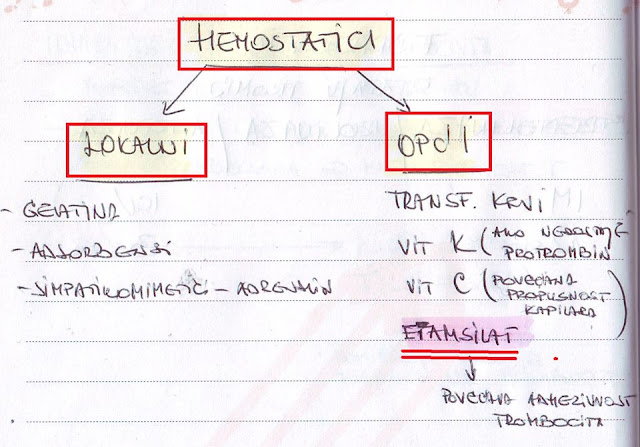 HEMOSTATICI
LOKALNI
OPĆI
- GELATINA
- ADSORBENSI
- SIMPATIKOMIMETICI - ADRENALIN
TRANSF. KRVI
VIT K (AKO NEDOSTAJE
PROTROMBIN)
VIT C (POVEĆANA
PROPUSNOST
KAPILARA)
ETAMSILAT
POVEĆAVA ADHEZIVNOST
TROMBOCITA